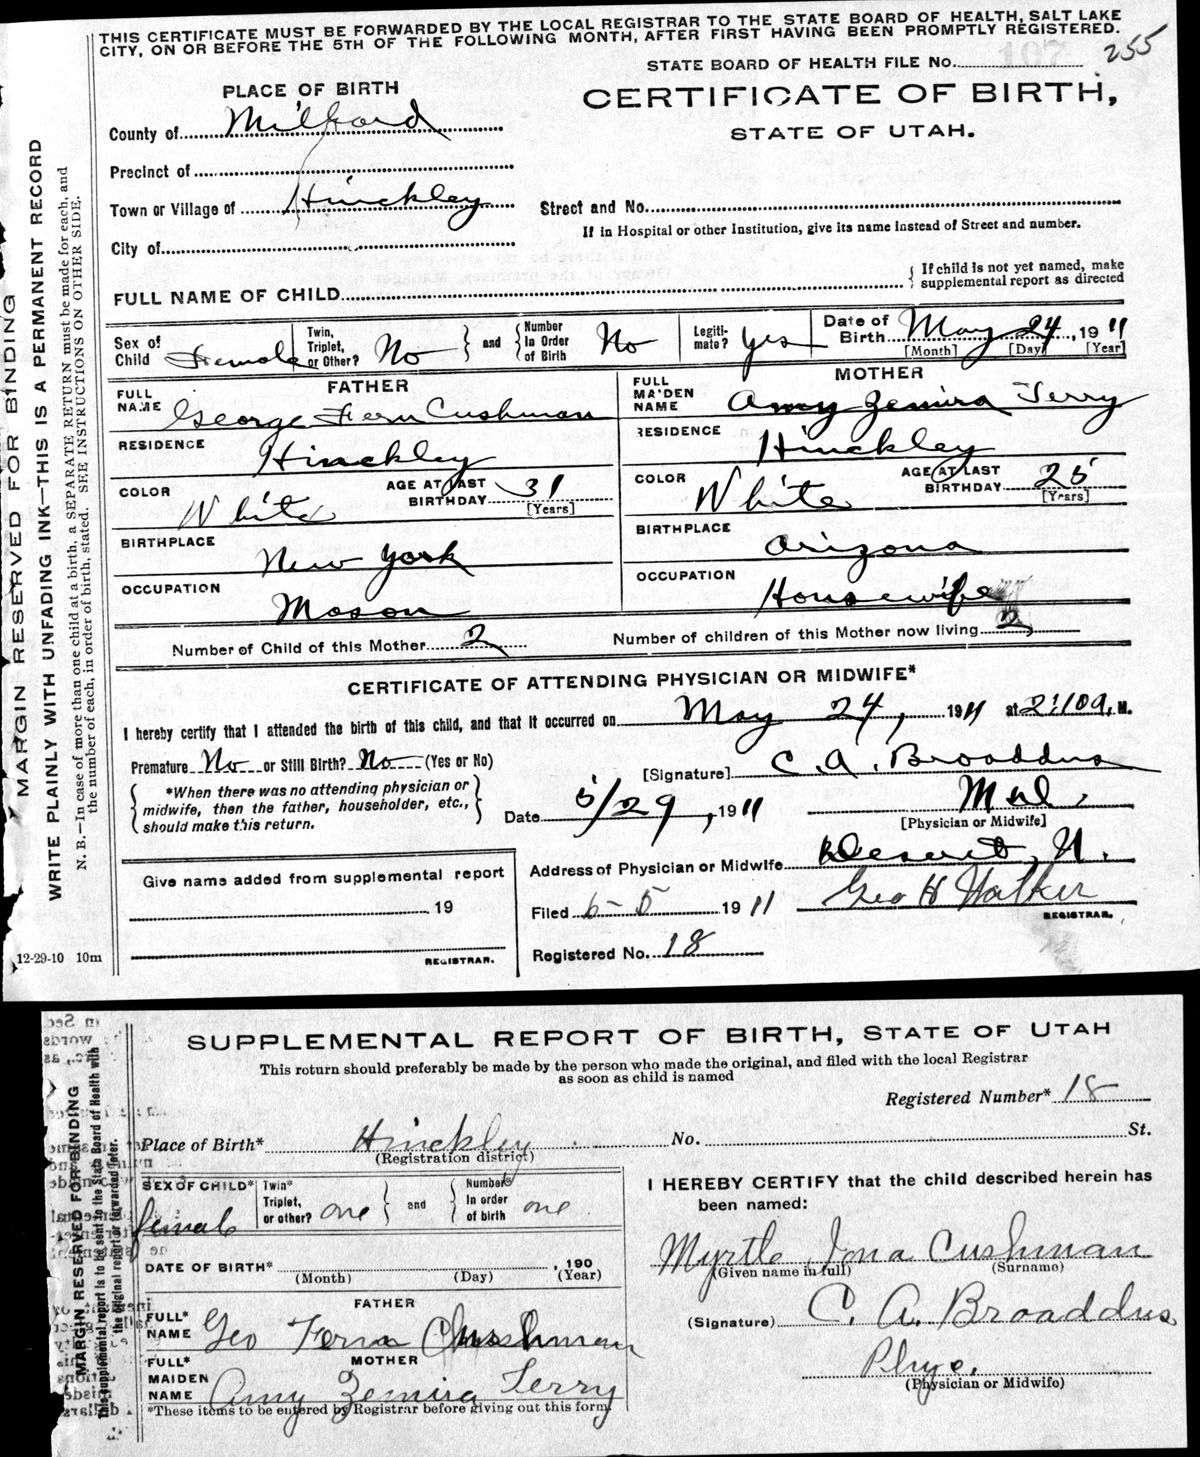 THIS CERTIFICATE MUST BE FORWARDED BY THE LOCAL REGISTRAR TO THE STATE BOARD OF HEALTH, SALT LAKE
CITY, ON OR BEFORE THE 5TH OF THE FOLLOWING MONTH, AFTER FIRST HAVING BEEN PROMPTLY REGISTERED.
STATE BOARD OF HEALTH FILE No. 107 255
PLACE OF BIRTH
CERTIFICATE OF BIRTH,
STATE OF UTAH.
County of Millard
Precinct of
Town or Village of Hinckley
Street and No.
If in Hospital or other Institution, give its name instead of Street and number.
City of
FULL NAME OF CHILD
{ If child is not yet named, make
supplemental report as directed
Sex of Child Female
Twin, Triplet, or Other? No } and { Number In Order of Birth No
Legiti-mate? Yes
Date of Birth May 24, 1911
[Month] [Day] [Year]
FATHER
FULL NAME George Fern Cushman
RESIDENCE Hinckley
COLOR White
AGE AT LAST BIRTHDAY 31 [Years]
BIRTHPLACE New York
OCCUPATION Mason
MOTHER
FULL MAIDEN NAME Amy Zemira Terry
RESIDENCE Hinckley
COLOR White
AGE AT LAST BIRTHDAY 25 [Years]
BIRTHPLACE Arizona
OCCUPATION Housewife
Number of Child of this Mother 2
Number of children of this Mother now living 2
CERTIFICATE OF ATTENDING PHYSICIAN OR MIDWIFE*
I hereby certify that I attended the birth of this child, and that it occurred on May 24, 1911 at 2:10 a. M.
Premature No or Still Birth? No (Yes or No)
[Signature] C. A. Broaddus
{ *When there was no attending physician or
midwife, then the father, householder, etc.,
should make this return. }
Date 5/29, 1911
M.D.
[Physician or Midwife]
Address of Physician or Midwife Deseret, U.
Give name added from supplemental report
19
REGISTRAR.
Filed 6-5 1911
Geo H Walker
REGISTRAR.
Registered No. 18
12-29-10 10m
MARGIN RESERVED FOR BINDING
WRITE PLAINLY WITH UNFADING INK—THIS IS A PERMANENT RECORD
N. B.—In case of more than one child at a birth, a SEPARATE RETURN must be made for each, and
the number of each, in order of birth, stated. SEE INSTRUCTIONS ON OTHER SIDE.
SUPPLEMENTAL REPORT OF BIRTH, STATE OF UTAH
This return should preferably be made by the person who made the original, and filed with the local Registrar
as soon as child is named
Registered Number* 18
Place of Birth* Hinckley No. St.
(Registration district)
SEX OF CHILD* female
Twin* Triplet, or other? one } and { Number In order of birth one
DATE OF BIRTH* , 190
(Month) (Day) (Year)
FATHER
FULL* NAME Geo Fern Cushman
MOTHER
FULL* MAIDEN NAME Amy Zemira Terry
*These items to be entered by Registrar before giving out this form.
I HEREBY CERTIFY that the child described herein has
been named:
Myrtle Iona Cushman
(Given name in full) (Surname)
(Signature) C. A. Broaddus
Phye.
(Physician or Midwife)
MARGIN RESERVED FOR BINDING
This supplemental report is to be sent to the State Board of Health with
the original report or forwarded later.